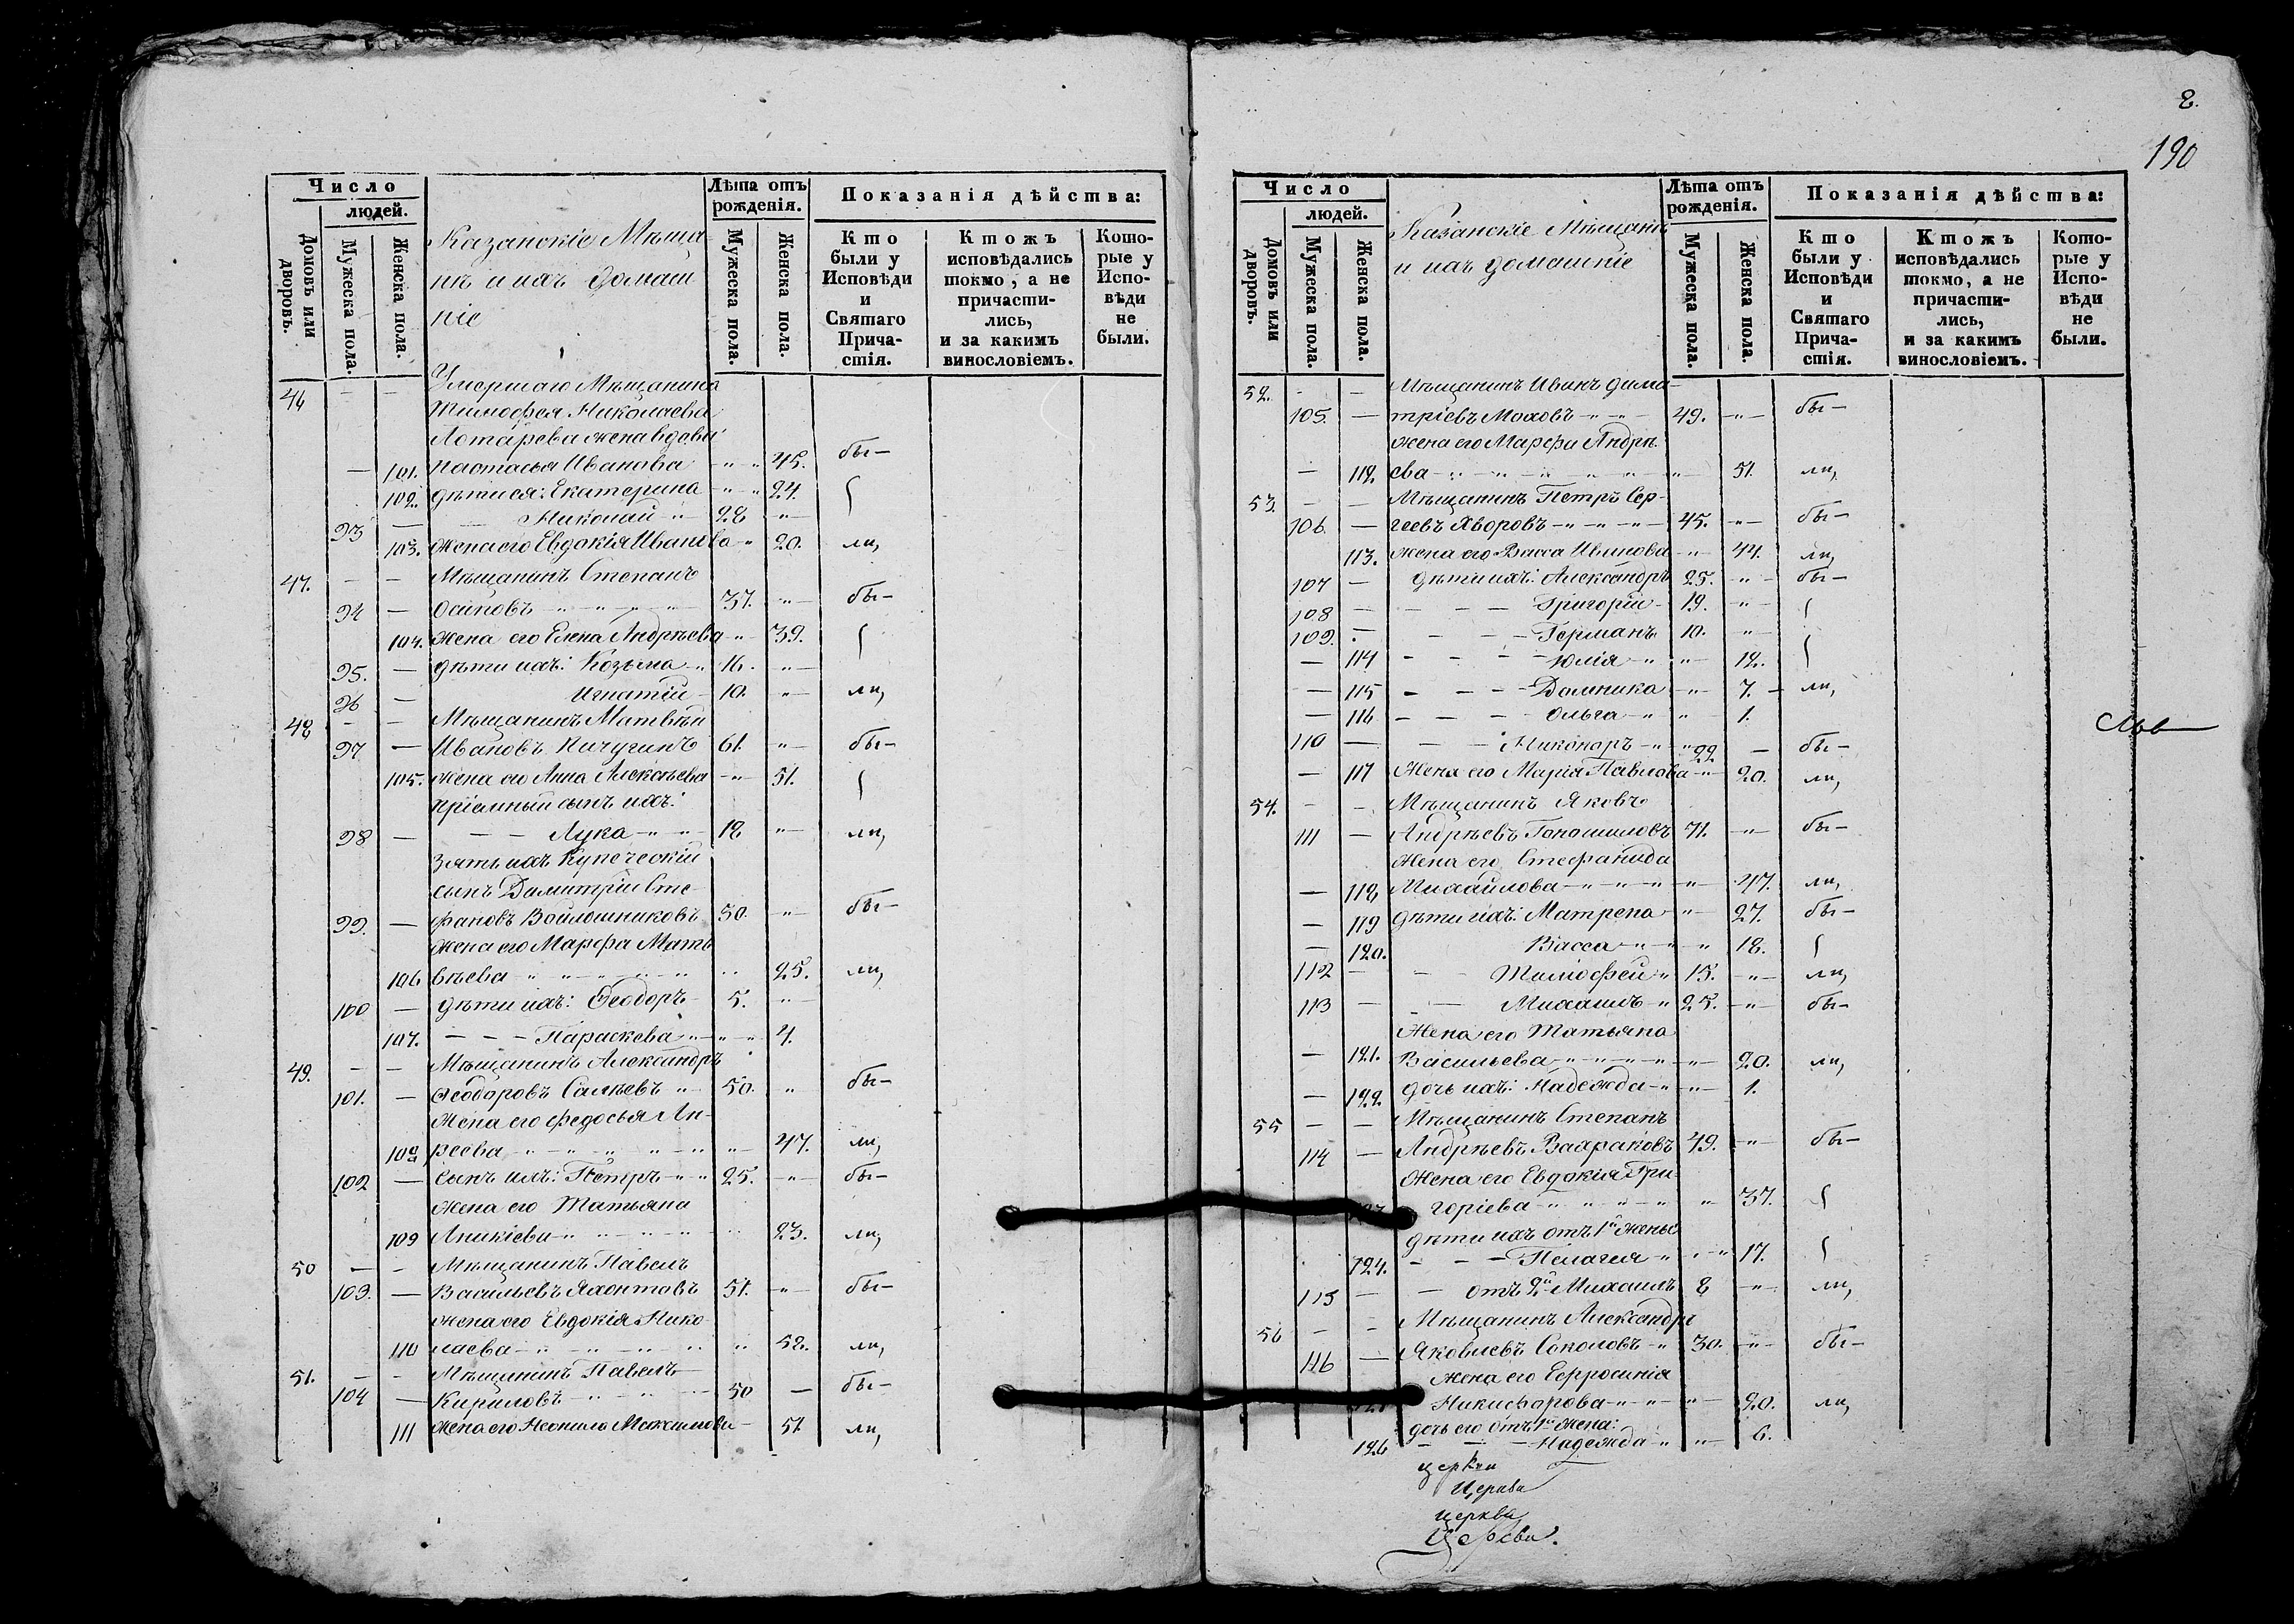 Число
людей.
Домовъ или дворовъ.
Мужеска пола.
Женска пола.
Казанскіе Мѣща-
нѣ и ихъ домаш
ніе
Лѣта отъ
рожденія.
Мужеска пола.
Женска пола.
Показанія дѣйства:
Кто
были у
Исповѣди
и
Святаго
Прича-
стія.
Ктожъ
исповѣдались
токмо, а не
причасти-
лись,
и за какимъ
винословіемъ.
Кото-
рые у
Испо-
вѣди
не
были.
46 — — Умершаго Мѣщанина
Тимофея Николаева
Лотарева жена вдова
— 101. Настасья Иванова — " " 45. бы—
102. дѣти ея: Екатерина — " " 24.
93 — Николай " 28 "—
103. Жена его Евдокія Иванова " 20. ли,
47. — — Мѣщанинъ Степанъ
94 — Осиповъ " — " — " 37. "— бы—
104. Жена его Елена Андрѣева " 39.
95. — дѣти ихъ: Козьма " 16. "—
96 — Игнатій — 10. "— ли,
48 — — Мѣщанинъ Матвѣй
97 — Ивановъ Пичугинъ 61. "— бы—
105. Жена его Анна Алексѣева — " — 51.
Пріемный сынъ ихъ:
98 — — — Лука — " " 18 "— ли,
Зять ихъ Купеческій
сынъ Димитрій Сте
99. — фановъ Войлошниковъ 30. "— бы—
Жена его Марфа Мать
106 вѣева " — " — " — " 25. ли,
100 — дѣти ихъ: Ѳеодоръ 5. "—
107. — — — Параскева " — " " 4.
49. — — Мѣщанинъ Александръ
101. — Ѳеодоровъ Салѣевъ " 50. " бы—
Жена его Федосья Ан-
108 реева — " — " — " — " 47. ли,
102 — сынъ ихъ: Петръ — " " 25. — " — бы—
Жена его Татьяна
109 Аникіева — " — " — " 23. ли,
50 — — Мѣщанинъ Павелъ
103. — Васильевъ Яхонтовъ 51. — " — бы—
Жена его Евдокія Нико
110 лаева — " — " — " — " 52. ли,
51. — — Мѣщанинъ Павелъ
104 — Кириловъ — " — " 50 — бы—
111 Жена его Неонила Максимова — 51 ли,
8.
190
Число
людей.
Домовъ или дворовъ.
Мужеска пола.
Женска пола.
Казанскіе Мѣщанѣ
и ихъ домашніе
Лѣта отъ
рожденія.
Мужеска пола.
Женска пола.
Показанія дѣйства:
Кто
были у
Исповѣди
и
Святаго
Прича-
стія.
Ктожъ
исповѣдались
токмо, а не
причасти-
лись,
и за какимъ
винословіемъ.
Кото-
рые у
Испо-
вѣди
не
были.
52. — — Мѣщанинъ Иванъ Дими-
105. — тріевъ Моховъ — " — " 49. "— бы—
Жена его Марфа Андрѣ
— 112. ева — " — " — " — " — 51. ли,
53. — — Мѣщанинъ Петръ Сер-
106. — геевъ Яворовъ — " — " — 45. "— бы—
113. Жена его Васса Иванова — " 44. ли,
107 — дѣти ихъ: Александръ 25. " — бы—
108 — — — Григорій — 19. "—
109. — — — Германъ 10. "—
— 114 — — — Юлія — " " — 12.
— 115 — — — Домника — " — 7. — ли,
— 116 — — — Ольга — " " — 1.
110 — — — Никоноръ — " 22 — бы—
— 117 Жена его Марія Павлова " — 20. ли,
Льв
54. — — Мѣщанинъ Яковъ
111 — Андрѣевъ 71. "— бы—
Жена его Стефанида
— 118 Михайлова — " — " — " 47. ли,
— 119 дѣти ихъ: Матрена — " — 27. бы—
— 120. Васса — " — " " 18.
112 — — — Тимофей " 15. — " — ли,
113 — — Михаилъ " 25. — " — бы—
Жена его Татьяна
— 121. Васильева — " — " — " — 20. ли,
— 122. дочь ихъ: Надежда — " " — 1.
55 — — Мѣщанинъ Степанъ
114 — Андрѣевъ Вахраковъ 49. "— бы—
Жена его Евдокія Гри-
горіева — " — " — " " 37.
дѣти ихъ отъ 1й Жены
124. — — — Пелагея — " " — 17.
115 — — отъ 2й Михаилъ 8 "— ли,
56 — — Мѣщанинъ Александръ
116 — Яковлевъ Соколовъ — " 30. "— бы—
Жена его Евфросинія
Никифорова — " — " — 20. ли,
дочь его отъ 1й Жены:
126 — — — Надежда — " " — 6.
церкви
Церкви
церкви
Церкви.